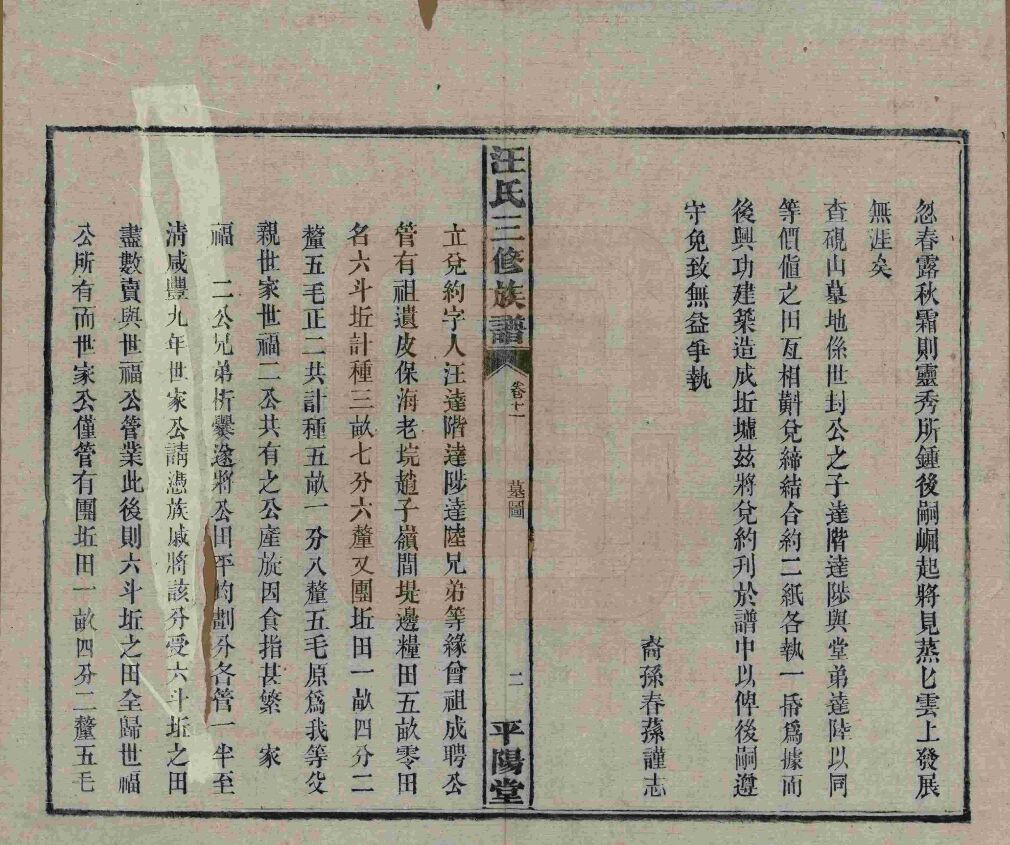 忽春露秋霜則靈秀所鍾後嗣崛起將見蒸匕雲上發展
無涯矣
查硯山墓地係世封公之子達階達陟與堂弟達陸以同
等價値之田互相斢兌締結合約二紙各執一㡭爲據而
後興功建築造成坵墟茲將兌約刋於譜中以俾後嗣遵
守免致無益爭執
裔孫春蓀謹志
汪氏三修族譜
卷十一
墓圖
二
平陽堂
立兌約字人汪達階達陟達陸兄弟等緣曾祖成聘公
管有祖遺皮保海老垸趙子嶺間堤邊糧田五畝零田
名六斗坵計種三畝七分六釐又團坵田一畝四分二
釐五毛正二共計種五畝一分八釐五毛原爲我等父
親世家世福二公共有之公產旋因食指甚繁　家
福　二公兄弟析爨遂將公田平均劃分各管一半至
淸咸豐九年世家公請憑族戚將該分受六斗坵之田
盡數賣與世福公管業此後則六斗坵之田全歸世福
公所有而世家公僅管有團坵田一畝四分二釐五毛